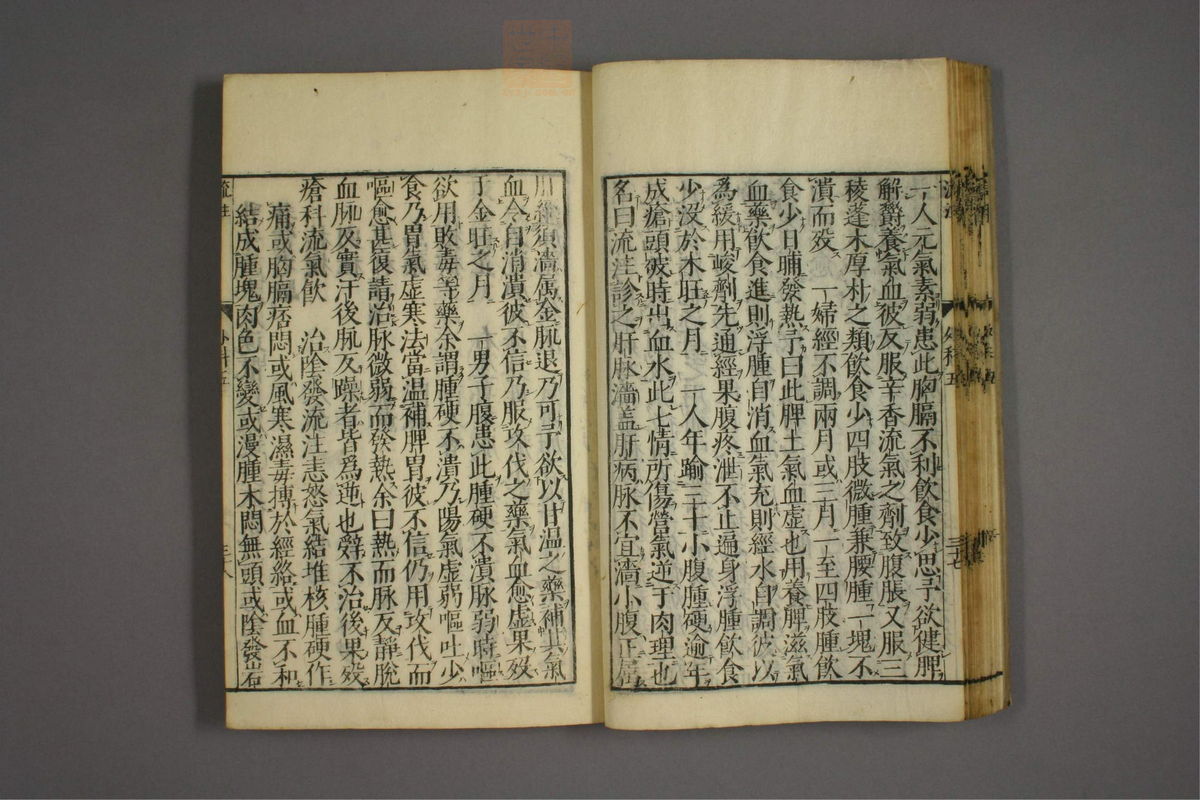 一人元氣素弱患此胸膈不利飲食少思予欲健脾
解欝養氣血彼反服辛香流氣之劑致腹脹又服三
稜蓬术厚朴之類飲食少四肢微腫兼腰腫一塊不
潰而殁　一婦經不調兩月或三月一至四肢腫飲
食少日晡發熱予曰此脾土氣血虚也用養脾滋氣
血藥飲食進則浮腫自消血氣充則經水自調彼以
為緩用峻劑先通經果腹疼泄不止遍身浮腫飲食
少没於木旺之月　一人年踰三十小腹腫硬逾年
成瘡頭破時出血水此七情所傷營氣逆于肉理也
名曰流注診之肝脉濇蓋肝病脉不宜濇小腹正屬
肝經須濇属金脉退乃可予欲以甘温之藥補其氣
血令自消潰彼不信乃服攻伐之藥氣血愈虚果殁
于金旺之月　一男子腹患此腫硬不潰脉弱時嘔
欲用敗毒等藥余謂腫硬不潰乃陽氣虚弱嘔吐少
食乃胃氣虚寒法當温補脾胃彼不信仍用攻伐而
嘔愈甚復請治脉微弱而發熱余曰熱而脉反靜脫
血脉反實汗後脉反躁者皆爲逆也辭不治後果殁
瘡科流氣飲　治陰發流注恚怒氣結堆核腫硬作
痛或胸膈痞悶或風寒濕毒搏於經絡或血不和
結成腫塊肉色不變或漫腫木悶無頭或陰發岩
外科五
三十七
流注
外科五
三十八